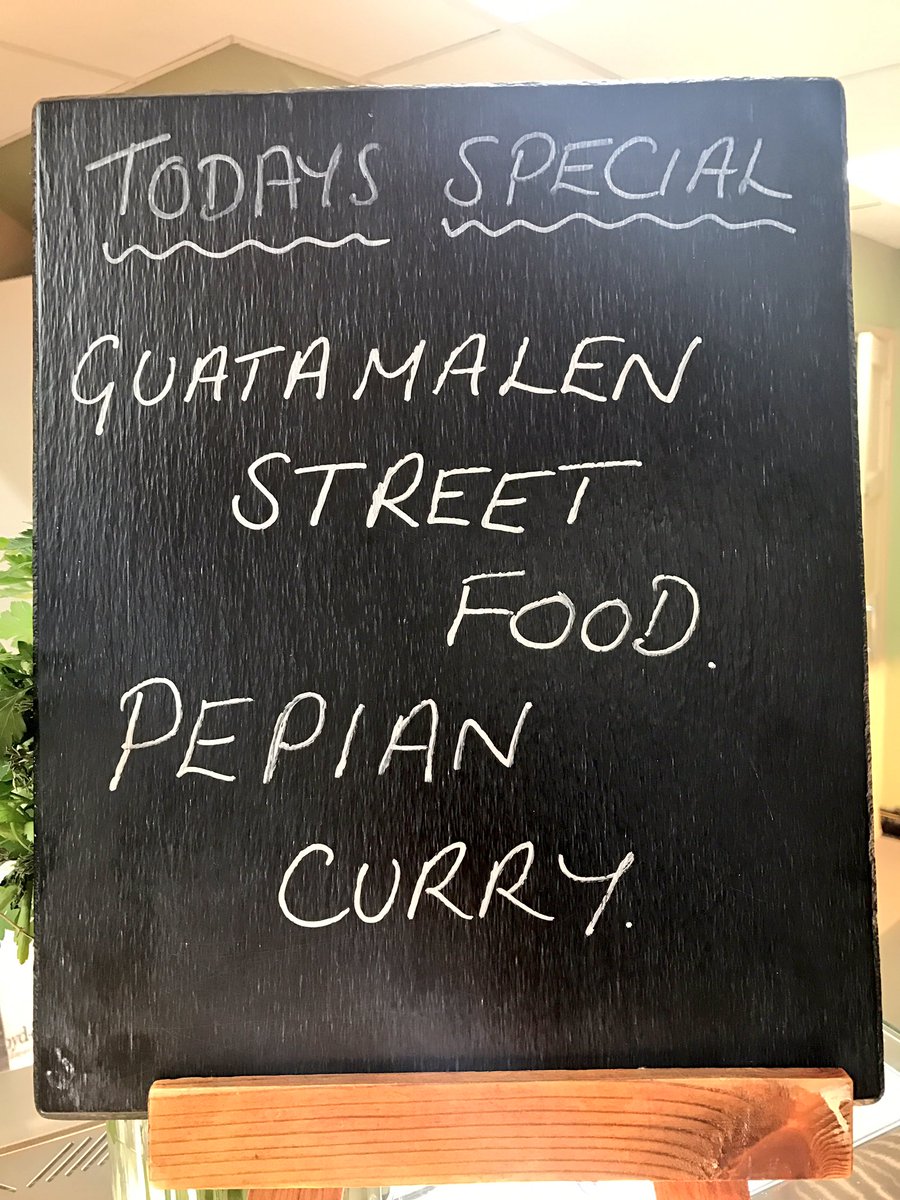 TODAYS SPECIAL
GUATAMALEN
STREET
FOOD.
PEPIAN
CURRY.